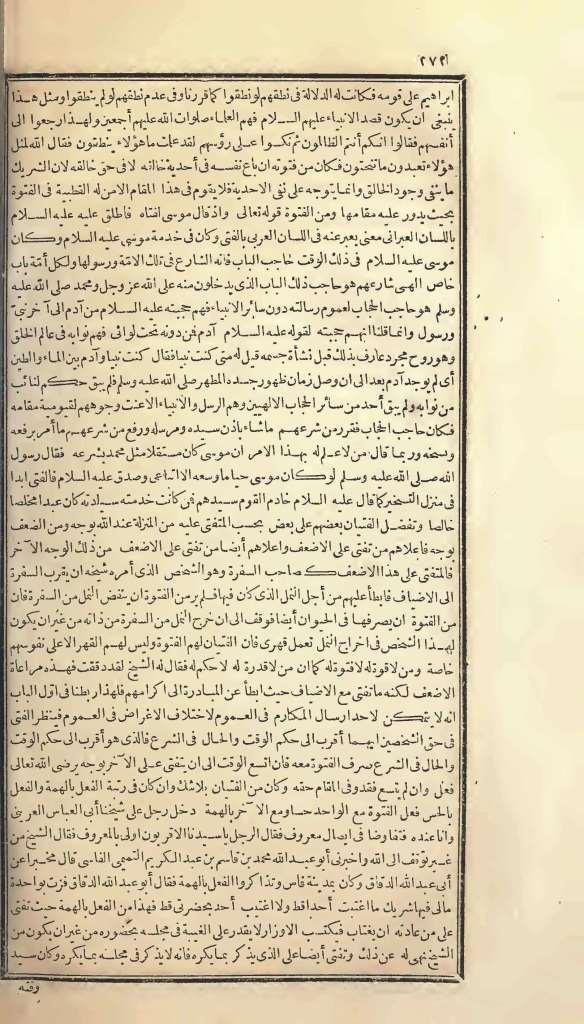 ٢٧٢
ابراهيم على قومه فكانت له الدلالة فى نطقهم لو نطقوا كما قررنا وفى عدم نطقهم لو لم ينطقوا ومثل هذا
ينبغى ان يكون قصد الانبياء عليهم السلام فهم العلماء صلوات الله عليهم أجمعين ولهذا رجعوا الى
أنفسهم فقالوا انكم أنتم الظالمون ثم نكسوا على رؤسهم لقد علمت ما هؤلاء ينطقون فقال الله لمثل
هؤلاء تعبدون ما تنحتون فكان من فتوته ان باع نفسه فى أحدية خالقه لا فى حق خالقه لان الشريك
ما ينفى وجود الخالق وانما يتوجه على نفى الاحدية فلا يقوم فى هذا المقام الا من له القطبية فى الفتوة
بحيث يدور عليه مقامها ومن الفتوة قوله تعالى واذ قال موسى لفتاه فاطلق عليه عليه السلام
باللسان العبرانى معنى يعبر عنه فى اللسان العربى بالفتى وكان فى خدمة موسى عليه السلام وكان
موسى عليه السلام فى ذلك الوقت حاجب الباب فانه الشارع فى تلك الامّة ورسولها ولكل أمّة باب
خاص الهى شارعهم هو حاجب ذلك الباب الذى يدخلون منه على الله عز وجل ومحمد صلى الله عليه
وسلم هو حاجب الحجاب لعموم رسالته دون سائر الانبياء فهم حجبته عليه السلام من آدم الى آخر نبىّ
ورسول وانما قلنا انهم حجبته لقوله عليه السلام آدم فمن دونه تحت لوائى فهم نوابه فى عالم الخلق
وهو روح مجرد عارف بذلك قبل نشأة جسمه قيل له متى كنت نبيا فقال كنت نبيا وآدم بين الماء والطين
أى لم يوجد آدم بعد الى ان وصل زمان ظهور جسده المطهر صلى الله عليه وسلم فلم يبق حكم لنائب
من نوابه ولم يبق أحد من سائر الحجاب الالهيين وهم الرسل والانبياء الا عنت وجوههم لقيومية مقامه
فكان حاجب الحجاب فقرر من شرعهم ماشاء باذن سيده ومرسله ورفع من شرعهم ما أمر برفعه
ونسخه وربما قال من لا علم له بهذا الامر ان موسى كان مستقلا مثل محمد بشرعه فقال رسول
الله صلى الله عليه وسلم لو كان موسى حيا ما وسعه الا اتباعى وصدق عليه السلام فالفتى ابدا
فى منزل التسخير كما قال عليه السلام خادم القوم سيدهم فمن كانت خدمته سيادته كان عبدا مخلصا
خالصا وتفضل الفتيان بعضهم على بعض بحسب المتفتى عليه من المنزلة عند الله بوجه ومن الضعف
بوجه فاعلاهم من تفتى على الاضعف واعلاهم أيضا من تفتى على الاضعف من ذلك الوجه الآخر
فالمتفتى على هذا الاضعف كصاحب السفرة وهو الشخص الذى أمره شيخه ان يقرب السفرة
الى الاضياف فابطأ عليهم من أجل النمل الذى كان فيها فلم ير من الفتوة ان ينفض النمل من السفرة فان
من الفتوة ان يصرفها فى الحيوان أيضا فوقف الى ان خرج النمل من السفرة من ذاته من غير ان يكون
لهذا الشخص فى اخراج النمل تعمل قهرى فان الفتيان لهم الفتوة وليس لهم القهر الا على نفوسهم
خاصة ومن لا قوة له لا فتوة له كما ان من لا قدرة له لا حكم له فقال له الشيخ لقد دققت فهذه مراعاة
الاضعف لكنه ما تفتى مع الاضياف حيث ابطأ عن المبادرة الى اكرامهم فلهذا ربطنا فى اول الباب
انه لا يتمكن لاحد ارسال المكارم فى العموم لاختلاف الاغراض فى العموم فينظر الفتى
فى حق الشخصين ايهما أقرب الى حكم الوقت والحال فى الشرع فالذى هو أقرب الى حكم الوقت
والحال فى الشرع صرف الفتوة معه فان اتسع الوقت الى ان يتفتى على الآخر بوجه يرضى الله تعالى
فعل وان لم يتسع فقد وفى المقام حقه وكان من الفتيان بلا شك وان كان فى رتبة الفعل بالهمة والفعل
بالحس فعل الفتوة مع الواحد حسا ومع الآخر بالهمة دخل رجل على شيخنا أبى العباس العرينى
وانا عنده فتفاوضا فى ايصال معروف فقال الرجل يا سيدنا الاقربون اولى بالمعروف فقال الشيخ من
غير توقف الى الله واخبرنى أبو عبد الله محمد بن قاسم بن عبد الكريم التميمى الفاسى قال مخبرا عن
أبى عبد الله الدقاق وكان بمدينة فاس وتذاكروا الفعل بالهمة فقال أبو عبد الله الدقاق فزت بواحدة
مالى فيها شريك ما اغتبت أحدا قط ولا اغتيب أحد بحضرتى قط فهذا من الفعل بالهمة حيث تفتى
على من عادته ان يغتاب فيكتسب الاوزار لا يقدر على الغيبة فى مجلسه بحضوره من غير ان يكون من
الشيخ نهى له عن ذلك وتفتى أيضا على الذى يذكر بما يكره فانه لا يذكر فى مجلسه بما يكره وكان سيد
وقته